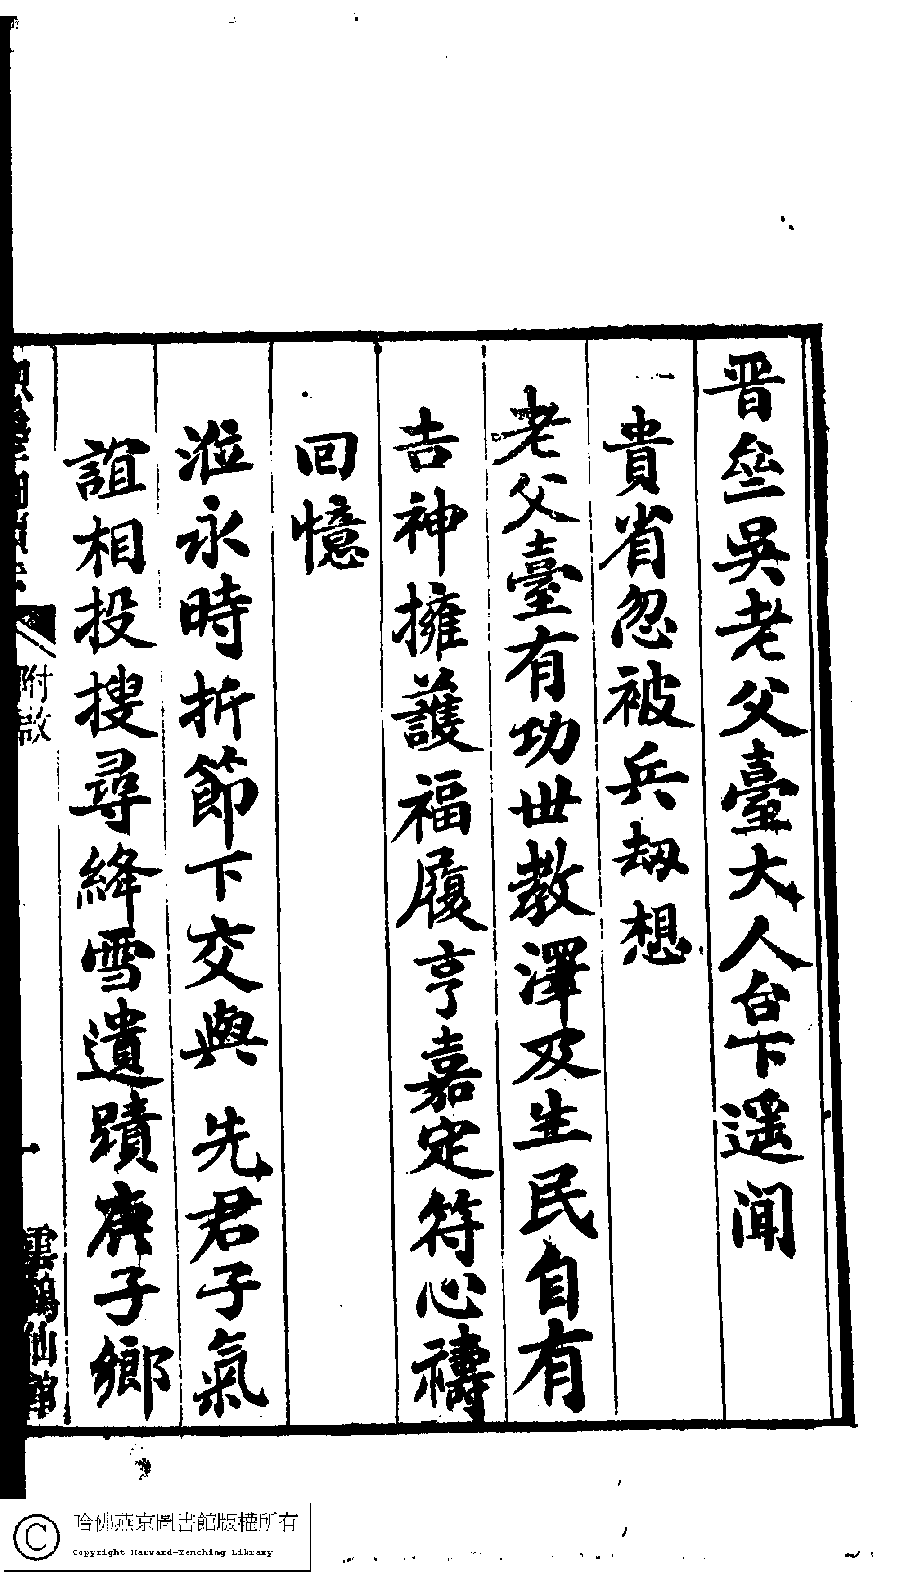 晋叄吳老父臺大人台下遥闻
貴省忽被兵刼想
老父臺有功世教澤及生民自有
吉神擁護福履亨嘉定符心禱
回憶
涖永時折節下交與 先君子氣
誼相投搜尋絳雪遺蹟庚子鄉
附啟
一
雲鶴仙館
哈佛燕京圖書館版權所有
Copyright Harvard-Yenching Library